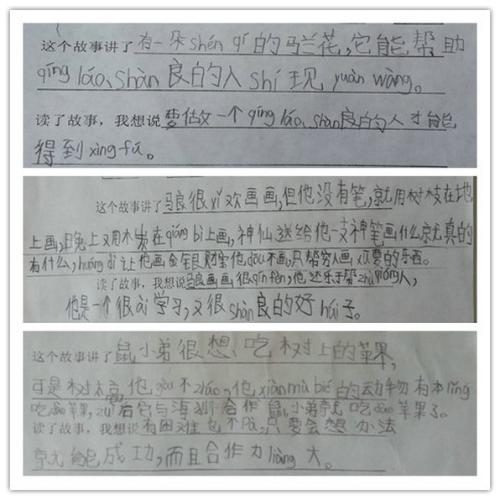 这个故事讲了有一朵shén qí的马兰花,它能帮助
qíng láo、shàn良的人shí现yuàn wàng。
读了故事,我想说要做一个qíng láo、shàn良的人才能
得到xìng fú。
这个故事讲了马良很xǐ欢画画,但他没有笔,就用树枝在地
上画,晚上又用木炭在qiáng bì上画,神仙送给他一支神笔画什么就真的
有什么,huáng dì让他画金银财宝他dōu不画,只帮穷人画欢要的东西。
读了故事,我想说马良画画很qín fèn,他还乐于帮zhù qióng人,
他是一个很ài学习,又很shàn良的好hái子。
这个故事讲了鼠小弟很想吃树上的苹果,
可是树太高他gòu不zháo,他xiàn mù bié的动物有本lǐng
吃dào苹果,zuì后它与海狮合作鼠小弟就吃dào苹果了。
读了故事,我想说有困难也不pà,只要会想办法
就能成功,而且合作力liàng大。